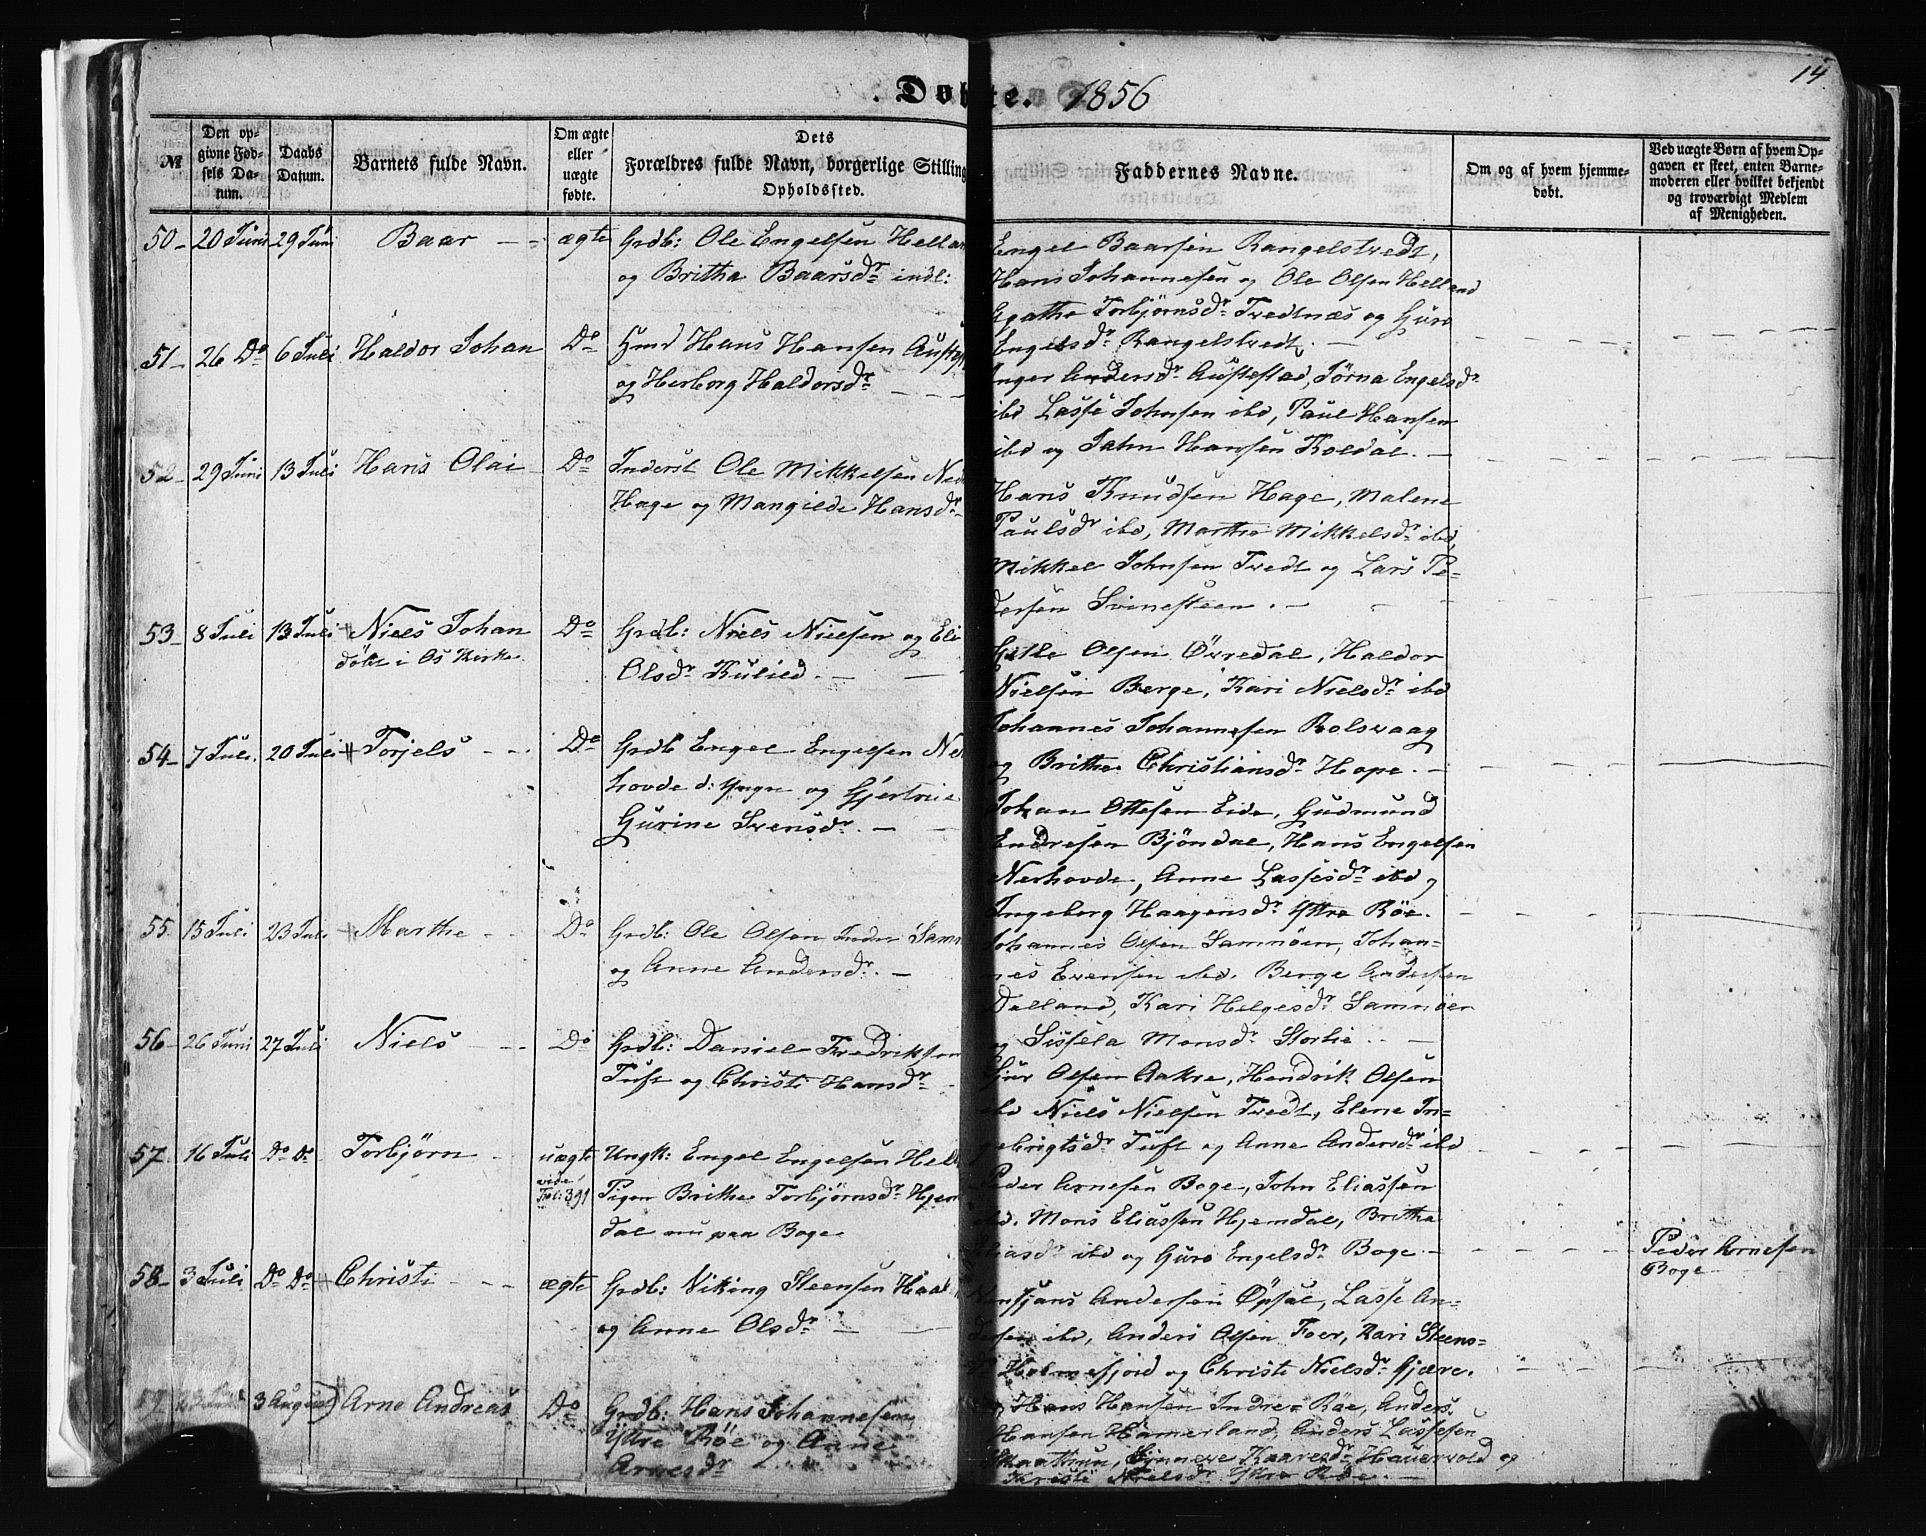 Dobte. 1856
14
№
Den op-
givne Fød-
sels Da-
tum.
Daabs
Datum.
Barnets fulde Navn.
Om ægte
eller
uægte
fødte.
Dets
Forældres fulde Navn, borgerlige Stilling
Opholdssted.
Faddernes Navne.
Om og af hvem hjemme-
døbt.
Ved uægte Børn af hvem Op-
gaven er skeet, enten Barne-
moderen eller hvilket bekjendt
og troværdigt Medlem
af Menigheden.
50 20 Juni 29 Juni Baar ægte Grdb: Ole Engelsen Hellan
og Britha Baarsdr indl:
Engel Baarsen Rangelstvedt,
Hans Johannesen og Ole Olsen Helland
Agatha Torbjørnsdr Tvedtnæs og Guro
Engelsdr Rangelstvedt.
51 26 Do 6 Juli Haldor Johan Do Hmd Hans Hansen Austest
og Herborg Haldorsdr
Inger Andersdr Austestad, Jørna Engelsdr
ibd Lasse Johnsen ibd, Paul Hansen
ibd og John Hansen Koldal.
52 29 Juni 13 Juli Hans Olai Do Inderst Ole Mikkelsen Ned
Hage og Mangilde Hansdr
Hans Knudsen Hage, Malene
Paulsdr ibd, Martha Mikkelsdr ibd
Mikkel Johnsen Tvedt og Lars Pe-
dersen Svinesteen.
53 8 Juli 13 Juli Niels Johan Do Grdb: Niels Nielsen og Eli
døbt i Os Kirke
Olsdr Kulied.
Olsen Øvredal, Haldor
Nielsen Berge, Kari Nielsdr ibd
Johannes Johannesen Rolsvaag
og Britha Christiansdr Hope.
54 7 Juli 20 Juli Torjels Do Grdb Engel Engelsen Ner
hovde d: Yngre og Gjertrue
Gurine Svensdr.
Johan Ottesen Eide, Gudmund
Endresen Bjøndal, Hans Engelsen
Nerhovde, Anne Lassesdr ibd og
Ingeborg Haagensdr Yttre Röe.
55. 15 Juli 23 Juli Marthe Do Grdb: Ole Olsen Indre Samn
og Anne Andersdr.
Johannes Olsen Samnöen, Johan-
nes Evensen ibd. Berge Andersen
Dalland, Kari Helgesdr Samnöen
og Sissela Monsdr Storlie.
56 26 Juni 27 Juli Niels Do Grdb: Daniel Fredriksen
Tuft og Christi Hansdr
Gjur Olsen Aakre, Hendrik Olsen
ibd Niels Nielsen Tvedt, Elene In-
gebrigtsdr Tuft og Anne Andersdr ibd
57. 16 Juli Do Do Torbjörn uægte Ungk: Engel Engelsen Hell
vide
Fol: 391
Pigen Britha Torbjörnsdr Hjem
dal nu paa Boge
Peder Arnesen Boge, John Eliassen
ibd. Mons Eliassen Hjemdal, Britha
Eliasdr ibd og Guro Engelsdr Boge.
Peder Arnesen
Boge
58 3 Juli Do Do Christi ægte Grdb: Viking Steensen Haal
og Anne Olsdr
Andersen Øpsal, Lasse An-
dersen ibd, Anders Olsen Foer, Kari Steens-
dr Holmefjord og Christi Nielsdr Gjære.
59 23 Juli 3 August Arne Andreas Do Grdb: Hans Johannesen
Yttre Röe og Anne
Arnesdr
Hans Hansen Indre Röe, Anders
Hansen Hamerland, Anders Lassesen
Skaathun, Synneve Kaaresdr Hauervold og
Kristi Nielsdr Yttre Röe.